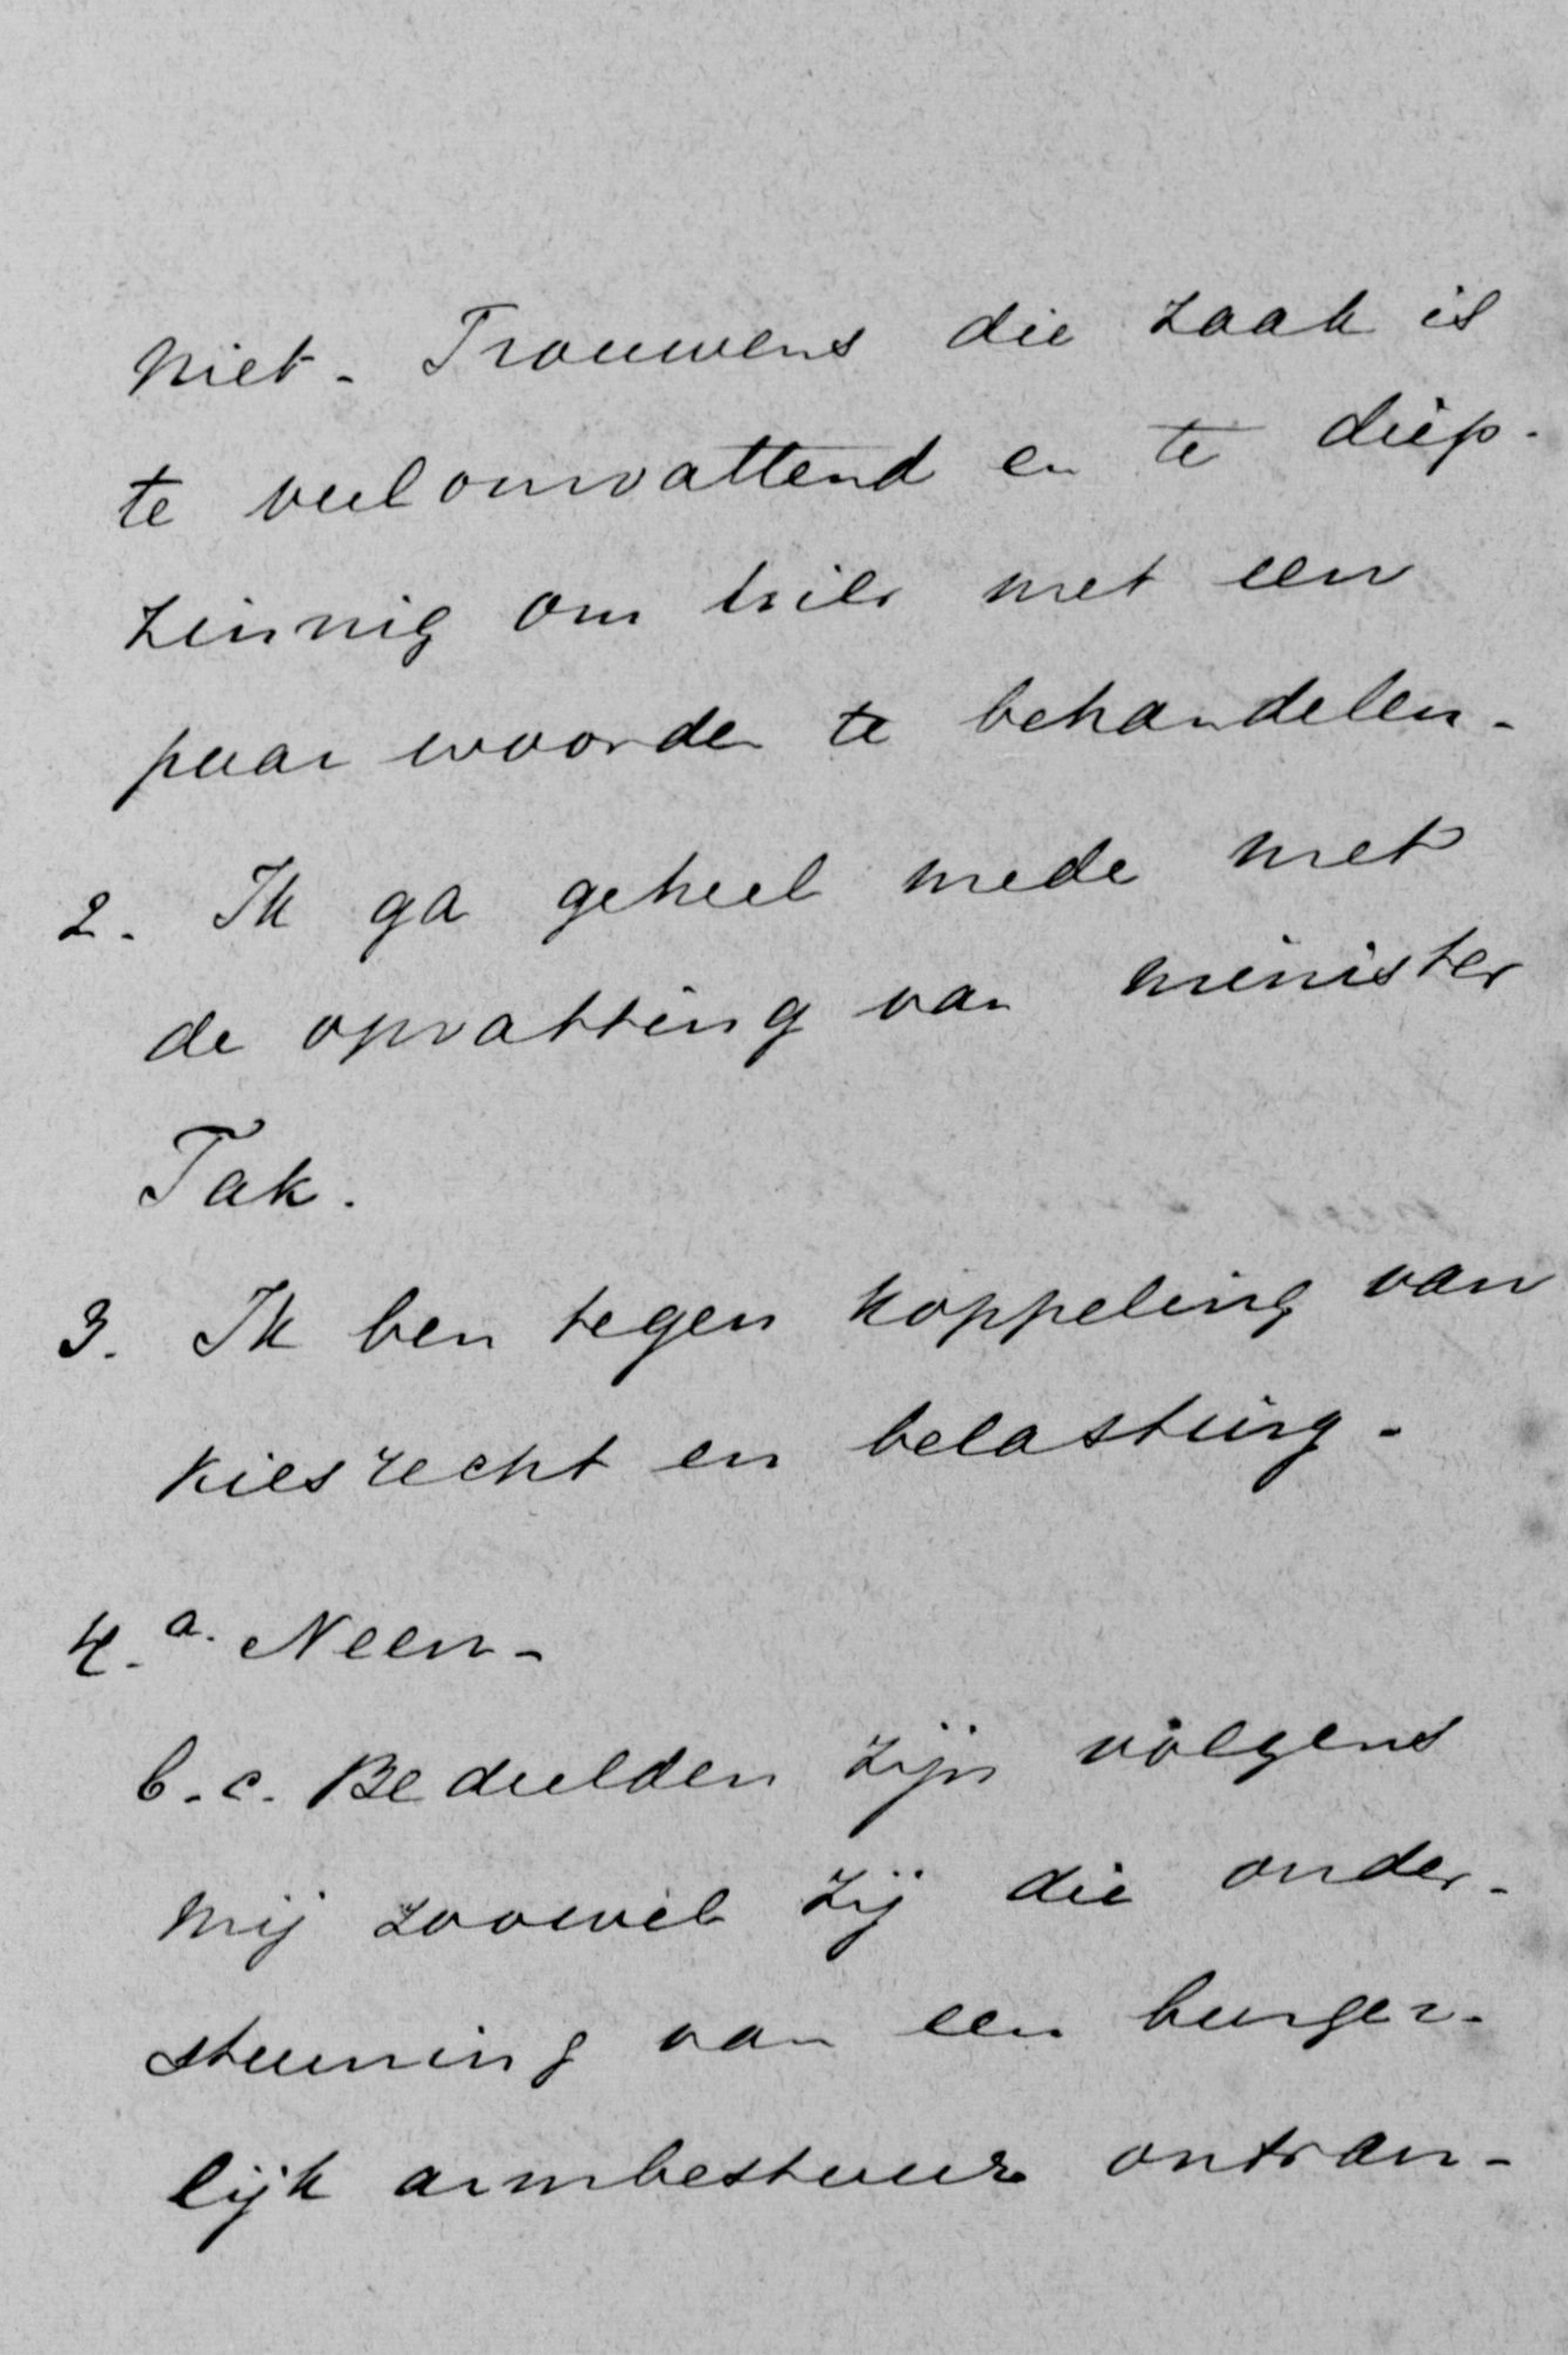 niet. Trouwens die zaak is
te veelomvattend en te diep-
zinnig om hier met een
paar woorden te behandelen.
2. Ik ga geheel mede met
de opvatting van minister
Tak.
3. Ik ben tegen koppeling van
kiesrecht en belasting.
4. a. Neen.
b. c. Bedeelden zijn volgens
mij zoowel zij die onder-
steuning van een burger-
lijk armbestuur ontvan-